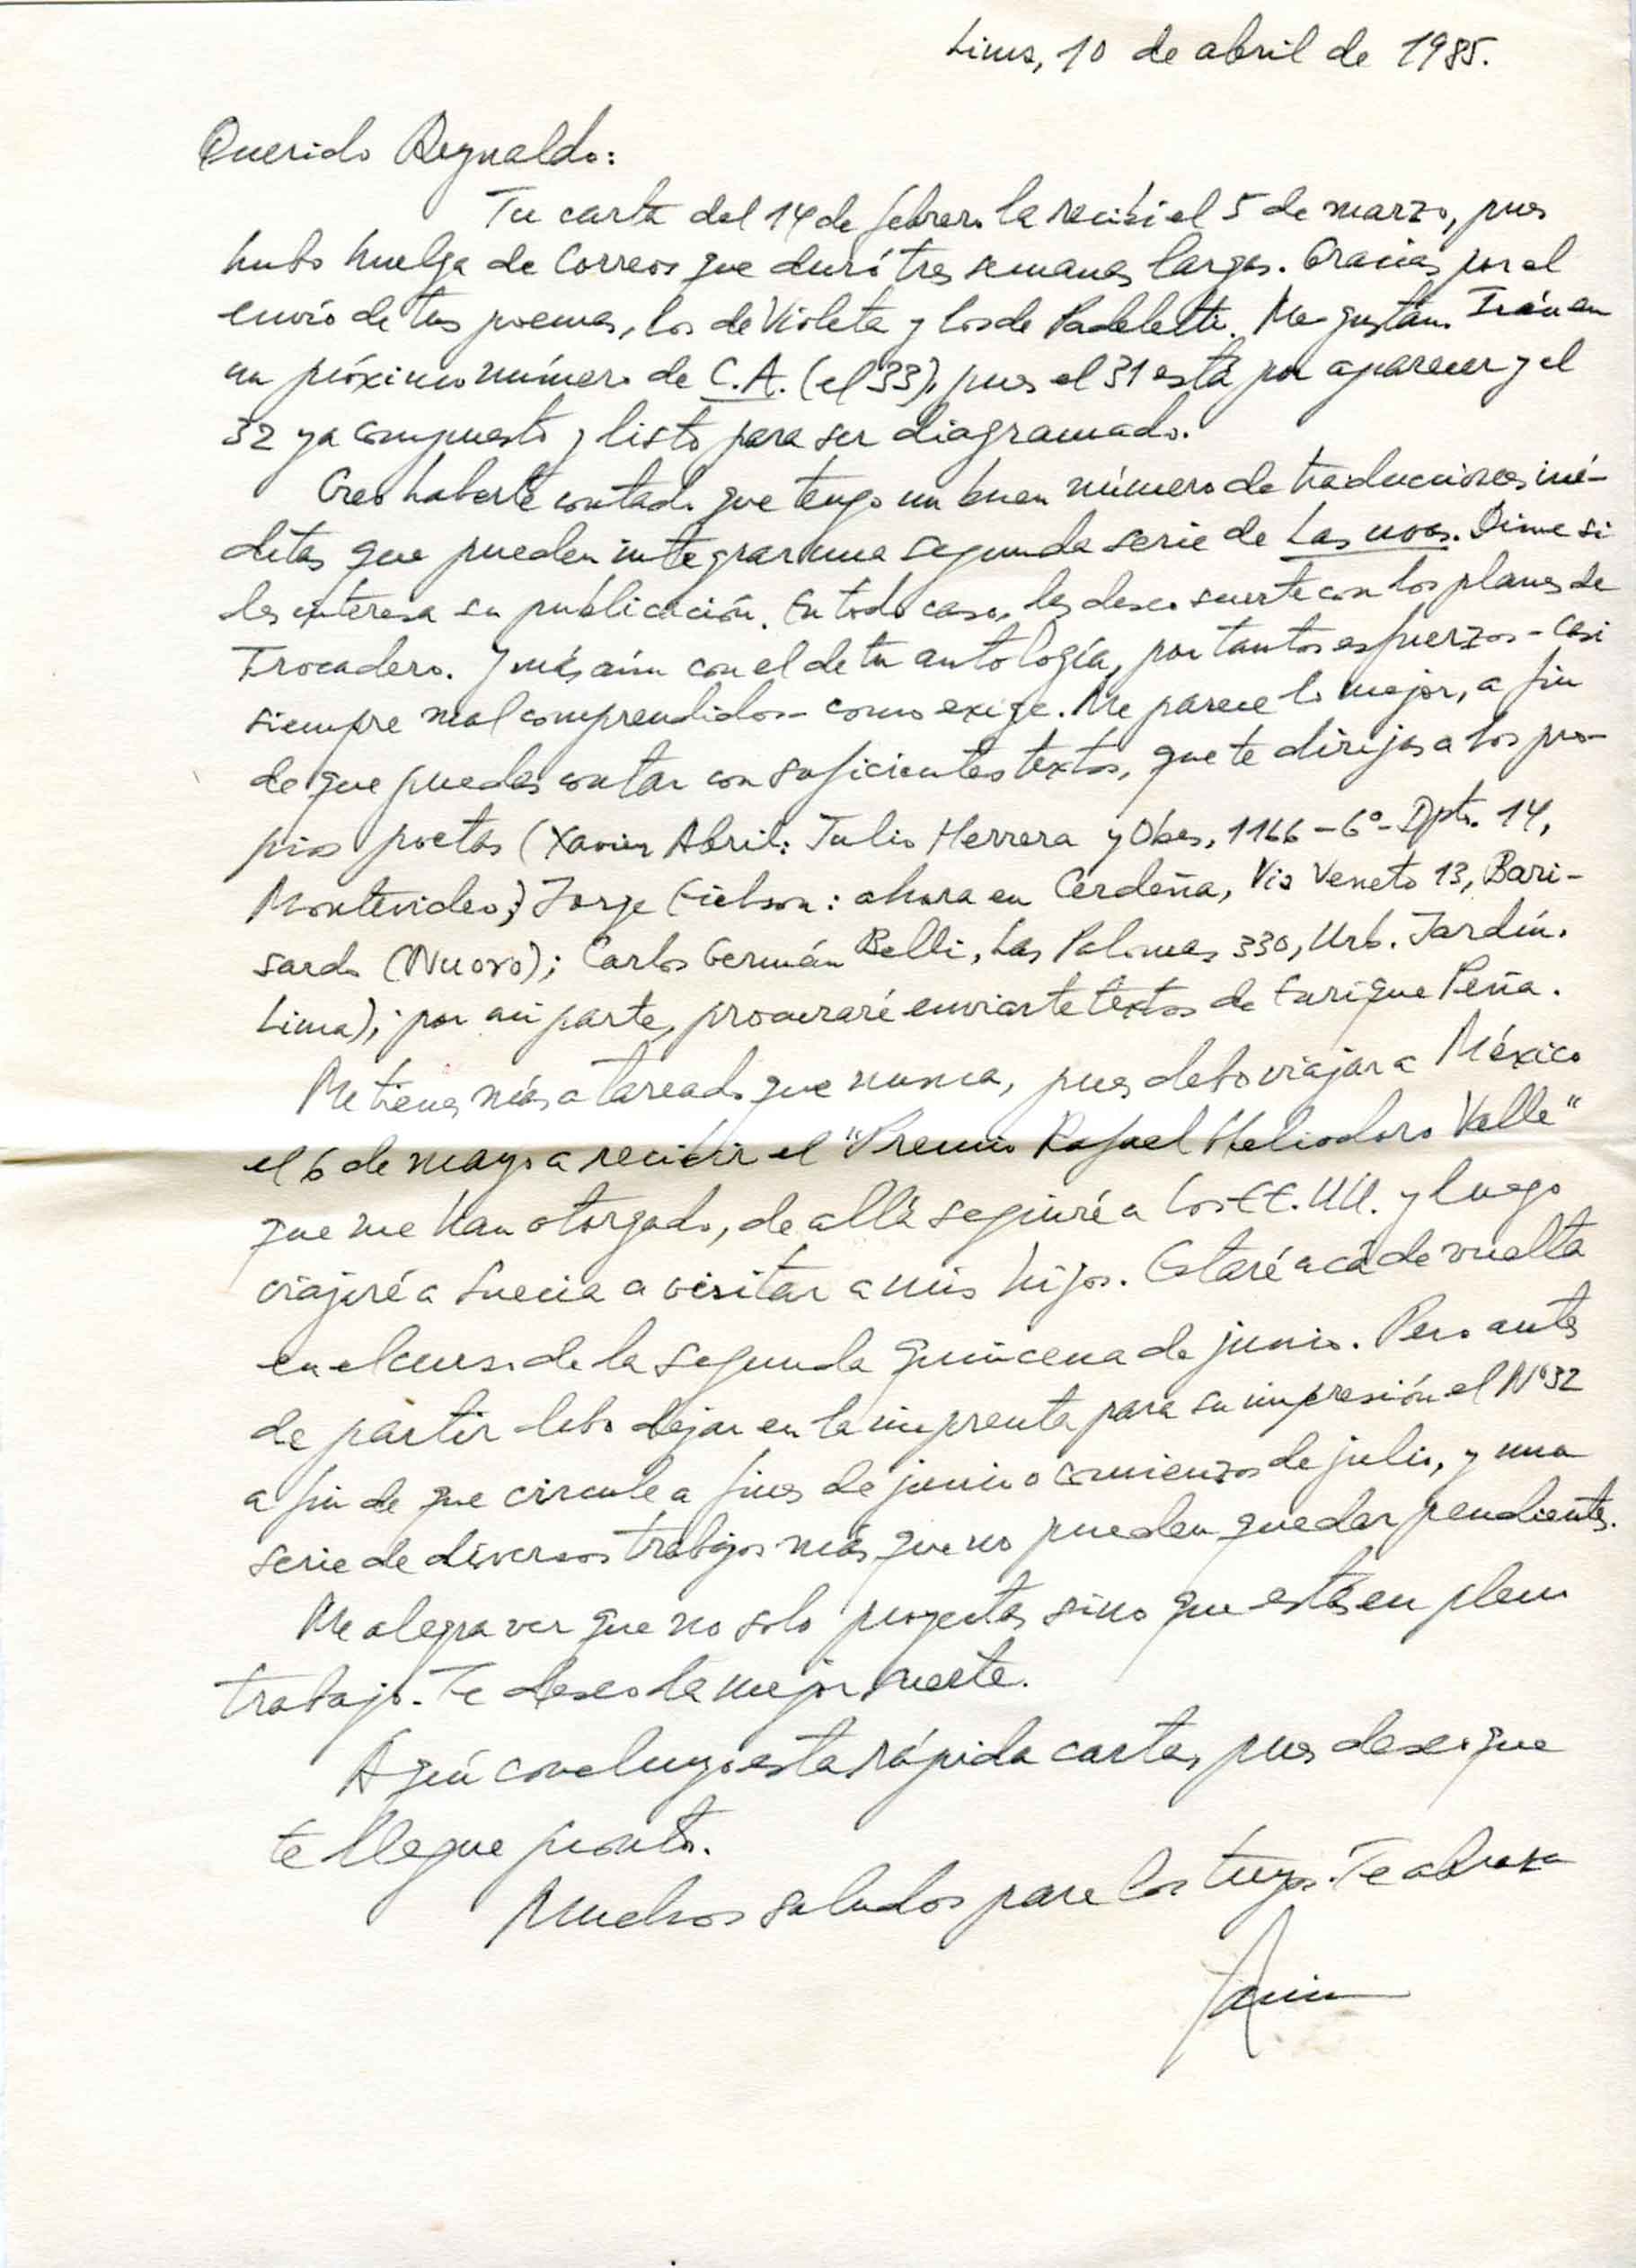 Lima, 10 de abril de 1985.
Querido Reynaldo:
Tu carta del 14 de febrero la recibí el 5 de marzo, pues
hubo huelga de Correos que duró tres semanas largas. Gracias por el
envío de tus poemas, los de Violeta y los de Padeletti. Me gustan. Irán en
un próximo número de C.A. (el 33), pues el 31 está por aparecer y el
32 ya compuesto y listo para ser diagramado.
Creo haberte contado que tengo un buen número de traducciones iné-
ditas que pueden integrar una segunda serie de Las uvas. Dime si
les interesa su publicación. En todo caso, les deseo suerte con los planes de
Trocadero. Y más aún con el de tu antología, por tantos esfuerzos - casi
siempre mal comprendidos - como exige. Me parece lo mejor, a fin
de que puedas contar con suficientes textos, que te dirijas a los pro-
pios poetas (Xavier Abril: Julio Herrera y Obes, 1166 - 6º - Dpto. 14,
Montevideo; Jorge Eielson: ahora en Cerdeña, Via Veneto 13, Bari-
sardo (Nuoro); Carlos Germán Belli, Las Palomas 330, Urb. Jardín.
Lima); por mi parte, procuraré enviarte textos de Enrique Peña.
Me tienes más atareado que nunca, pues debo viajar a México
el 6 de mayo a recibir el "Premio Rafael Heliodoro Valle"
que me han otorgado, de allá seguiré a los EE.UU. y luego
viajaré a Suecia a visitar a mis hijos. Estaré acá de vuelta
en el curso de la segunda quincena de junio. Pero antes
de partir debo dejar en la imprenta para su impresión el Nº 32
a fin de que circule a fines de junio o comienzos de julio, y una
serie de diversos trabajos más que no pueden quedar pendientes.
Me alegra ver que no solo proyectas sino que estás en pleno
trabajo. Te deseo la mejor suerte.
Aquí concluyo esta rápida carta, pues deseo que
te llegue pronto.
Muchos saludos para los tuyos. Te abraza